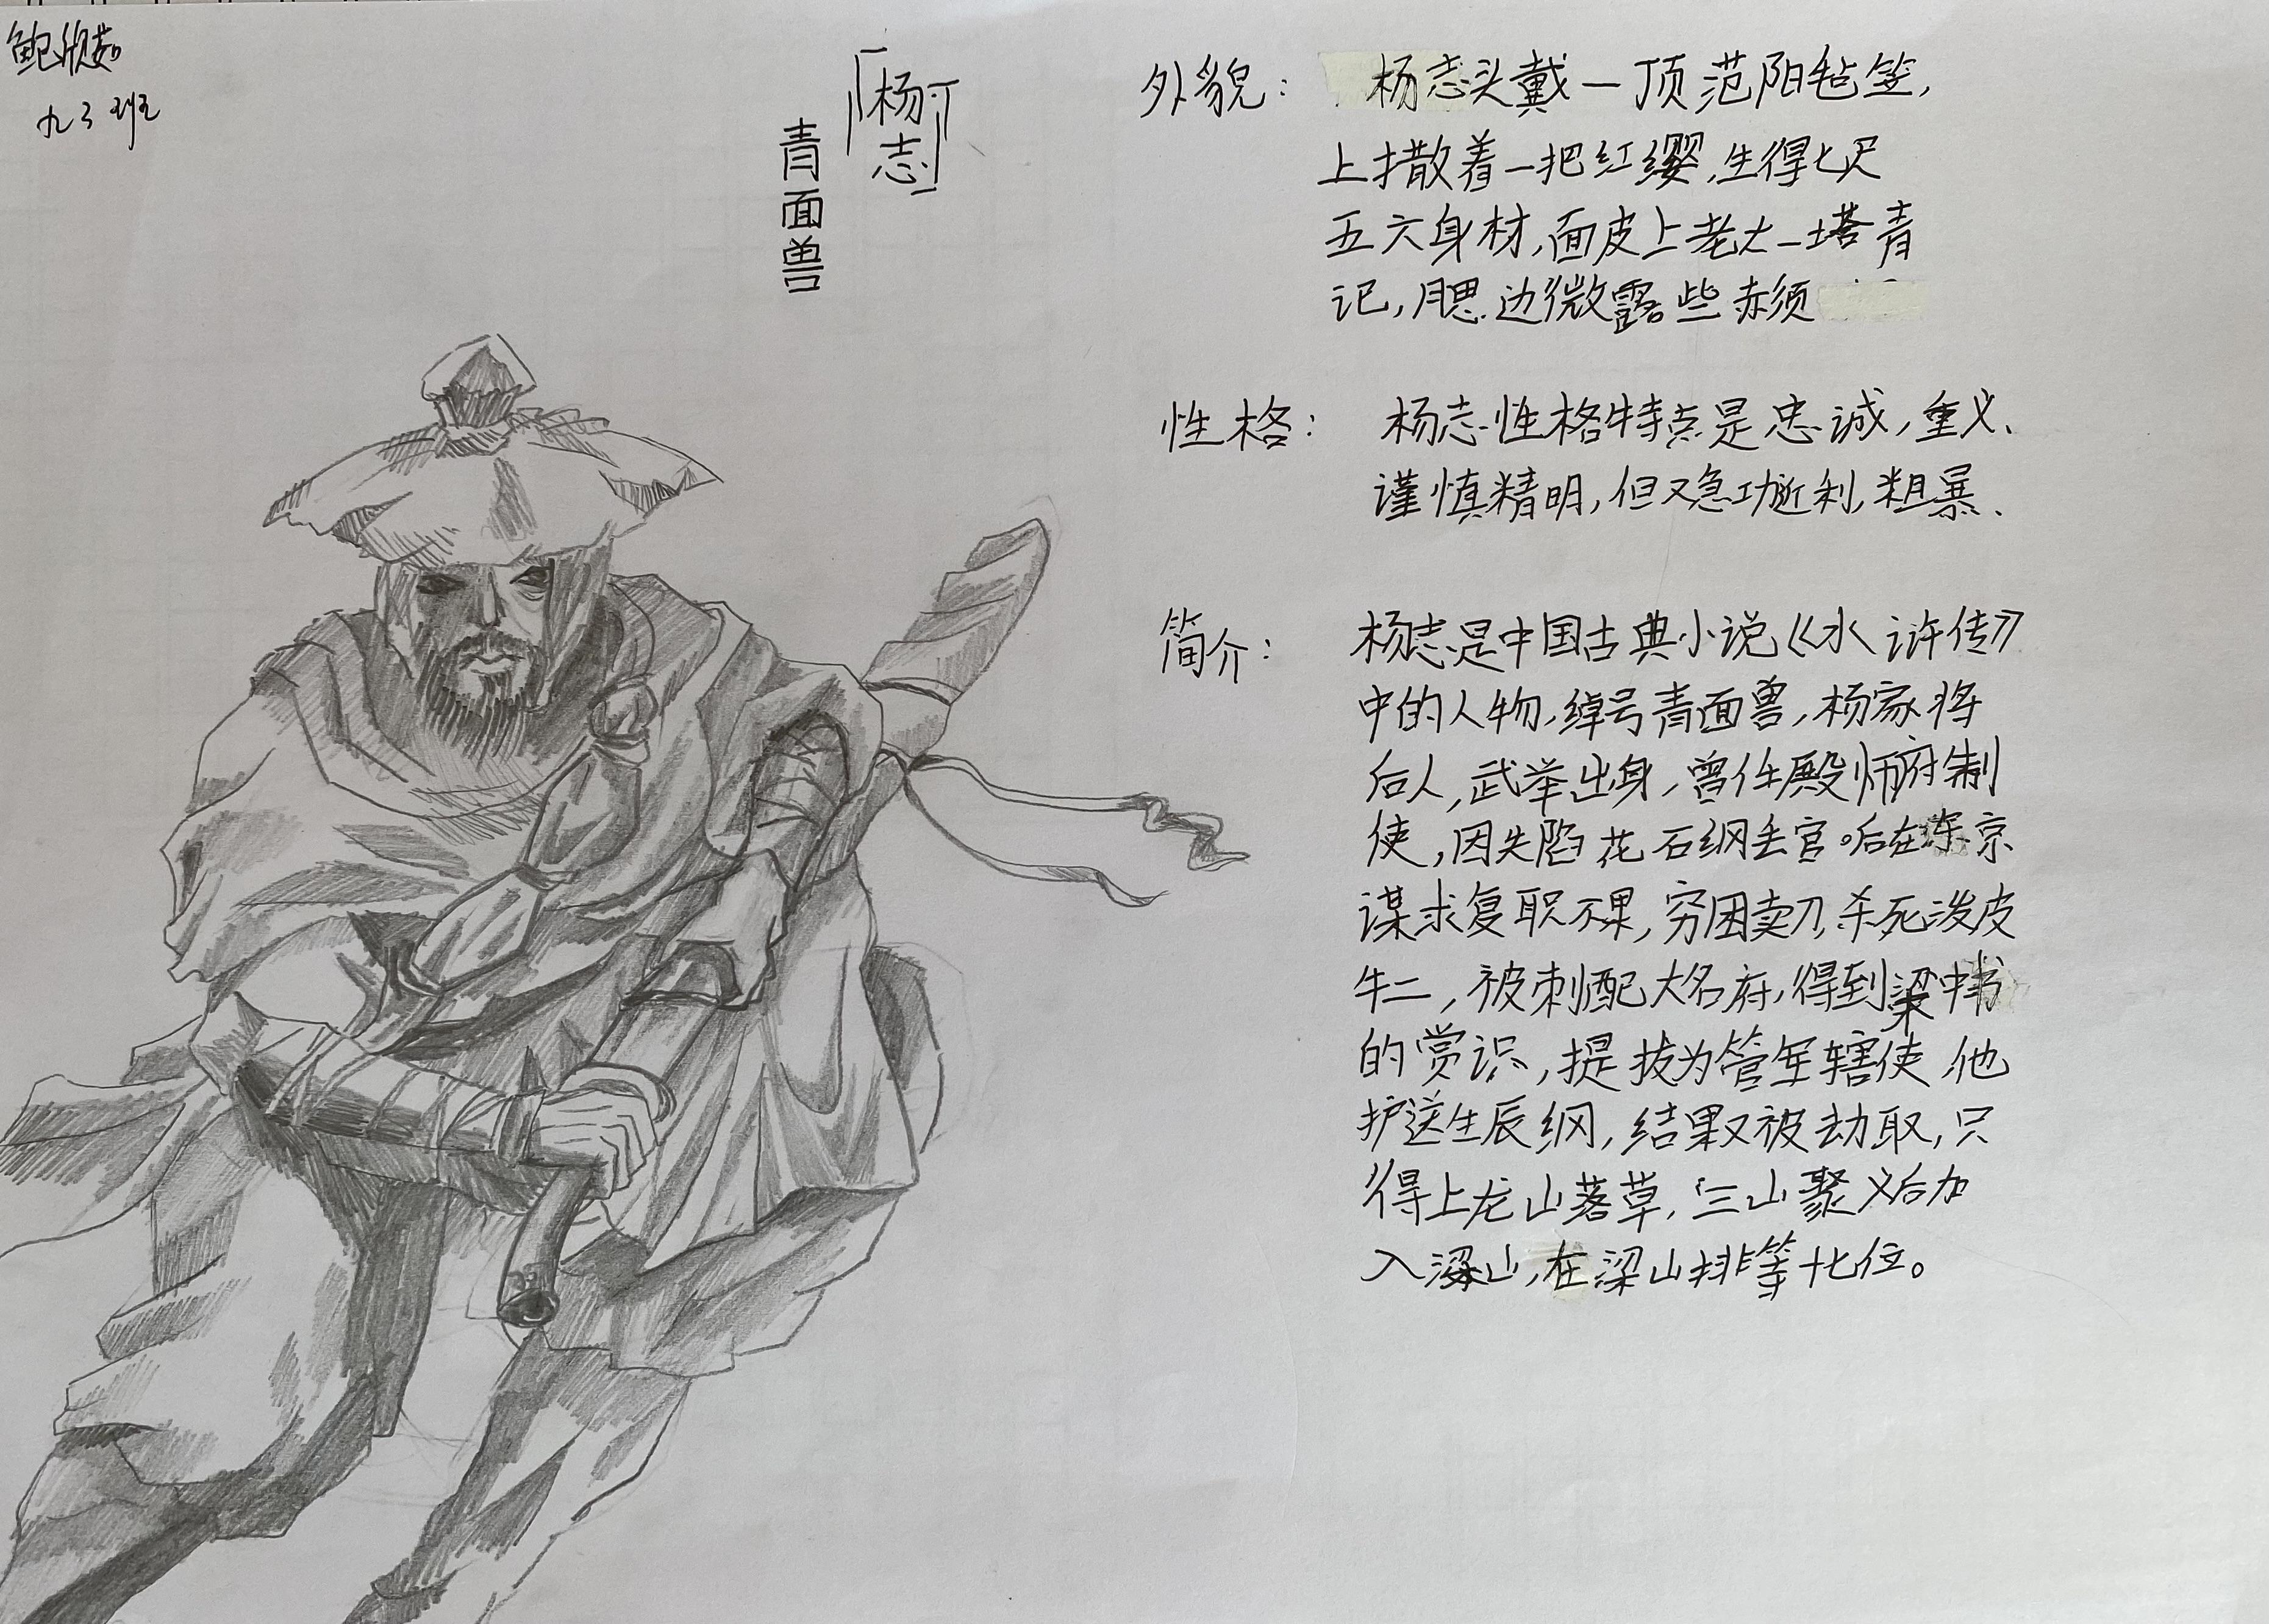 鲍欣茹
九3班
杨志
青面兽
外貌：杨志头戴一顶范阳毡笠,
上撒着一把红缨,生得七尺
五六身材,面皮上老大一塔青
记,腮边微露些赤须
性格：杨志性格特点是忠诚,重义、
谨慎精明,但又急功近利,粗暴、
简介：杨志是中国古典小说《水浒传》
中的人物,绰号青面兽,杨家将
后人,武举出身,曾任殿帅府制
使,因失陷花石纲丢官。后在东京
谋求复职不果,穷困卖刀,杀死泼皮
牛二,被刺配大名府,得到梁中书
的赏识,提拔为管军辖使,他
护送生辰纲,结果又被劫取,只
得上龙山落草,三山聚义后加
入梁山,在梁山排等十七位。